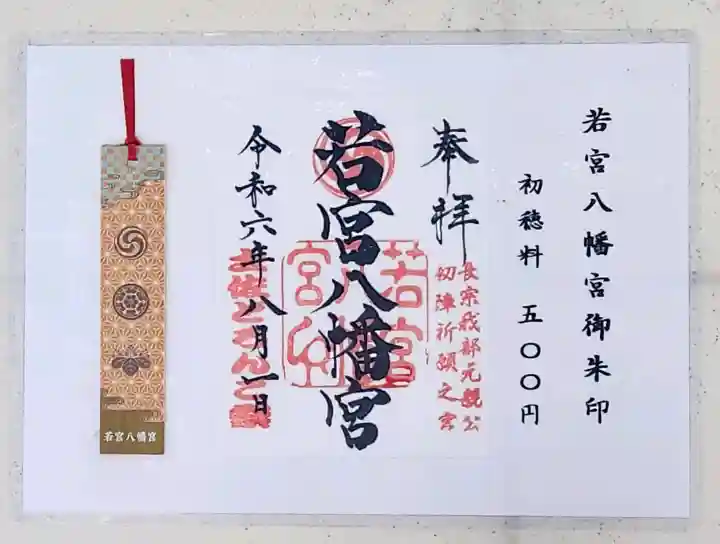 若宮八幡宮御朱印
初穂料 五〇〇円
奉拝
長宗我部元親公
初陣祈願之宮
若宮八幡宮
若宮
令和六年八月一日
若宮八幡宮